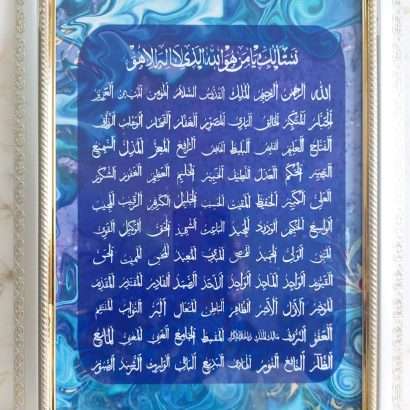 نسئالك يا من هو الله الذي لا اله الا هو
الله الرحمن الرحيم الملك القدوس السلام المؤمن المهيمن العزيز
الجبار المتكبر الخالق البارئ المصور الغفار القهار الوهاب الرزاق
الفتاح العليم القابض الباسط الخافض الرافع المعز المذل السميع
البصير الحكم العدل اللطيف الخبير الحليم العظيم الغفور الشكور
العلي الكبير الحفيظ المقيت الحسيب الجليل الكريم الرقيب المجيب
الواسع الحكيم الودود المجيد الباعث الشهيد الحق الوكيل القوي
المتين الولي الحميد المحصي المبدئ المعيد المحيي المميت الحي
القيوم الواجد الماجد الواحد الاحد الصمد القادر المقتدر المقدم
المؤخر الاول الاخر الظاهر الباطن المتعال البر التواب المنتقم
العفو الرؤف مالك الملك ذو الجلال والاكرام المقسط الجامع الغني المغني المانع
الضار النافع النور الهادي البديع الباقي الوارث الرشيد الصبور